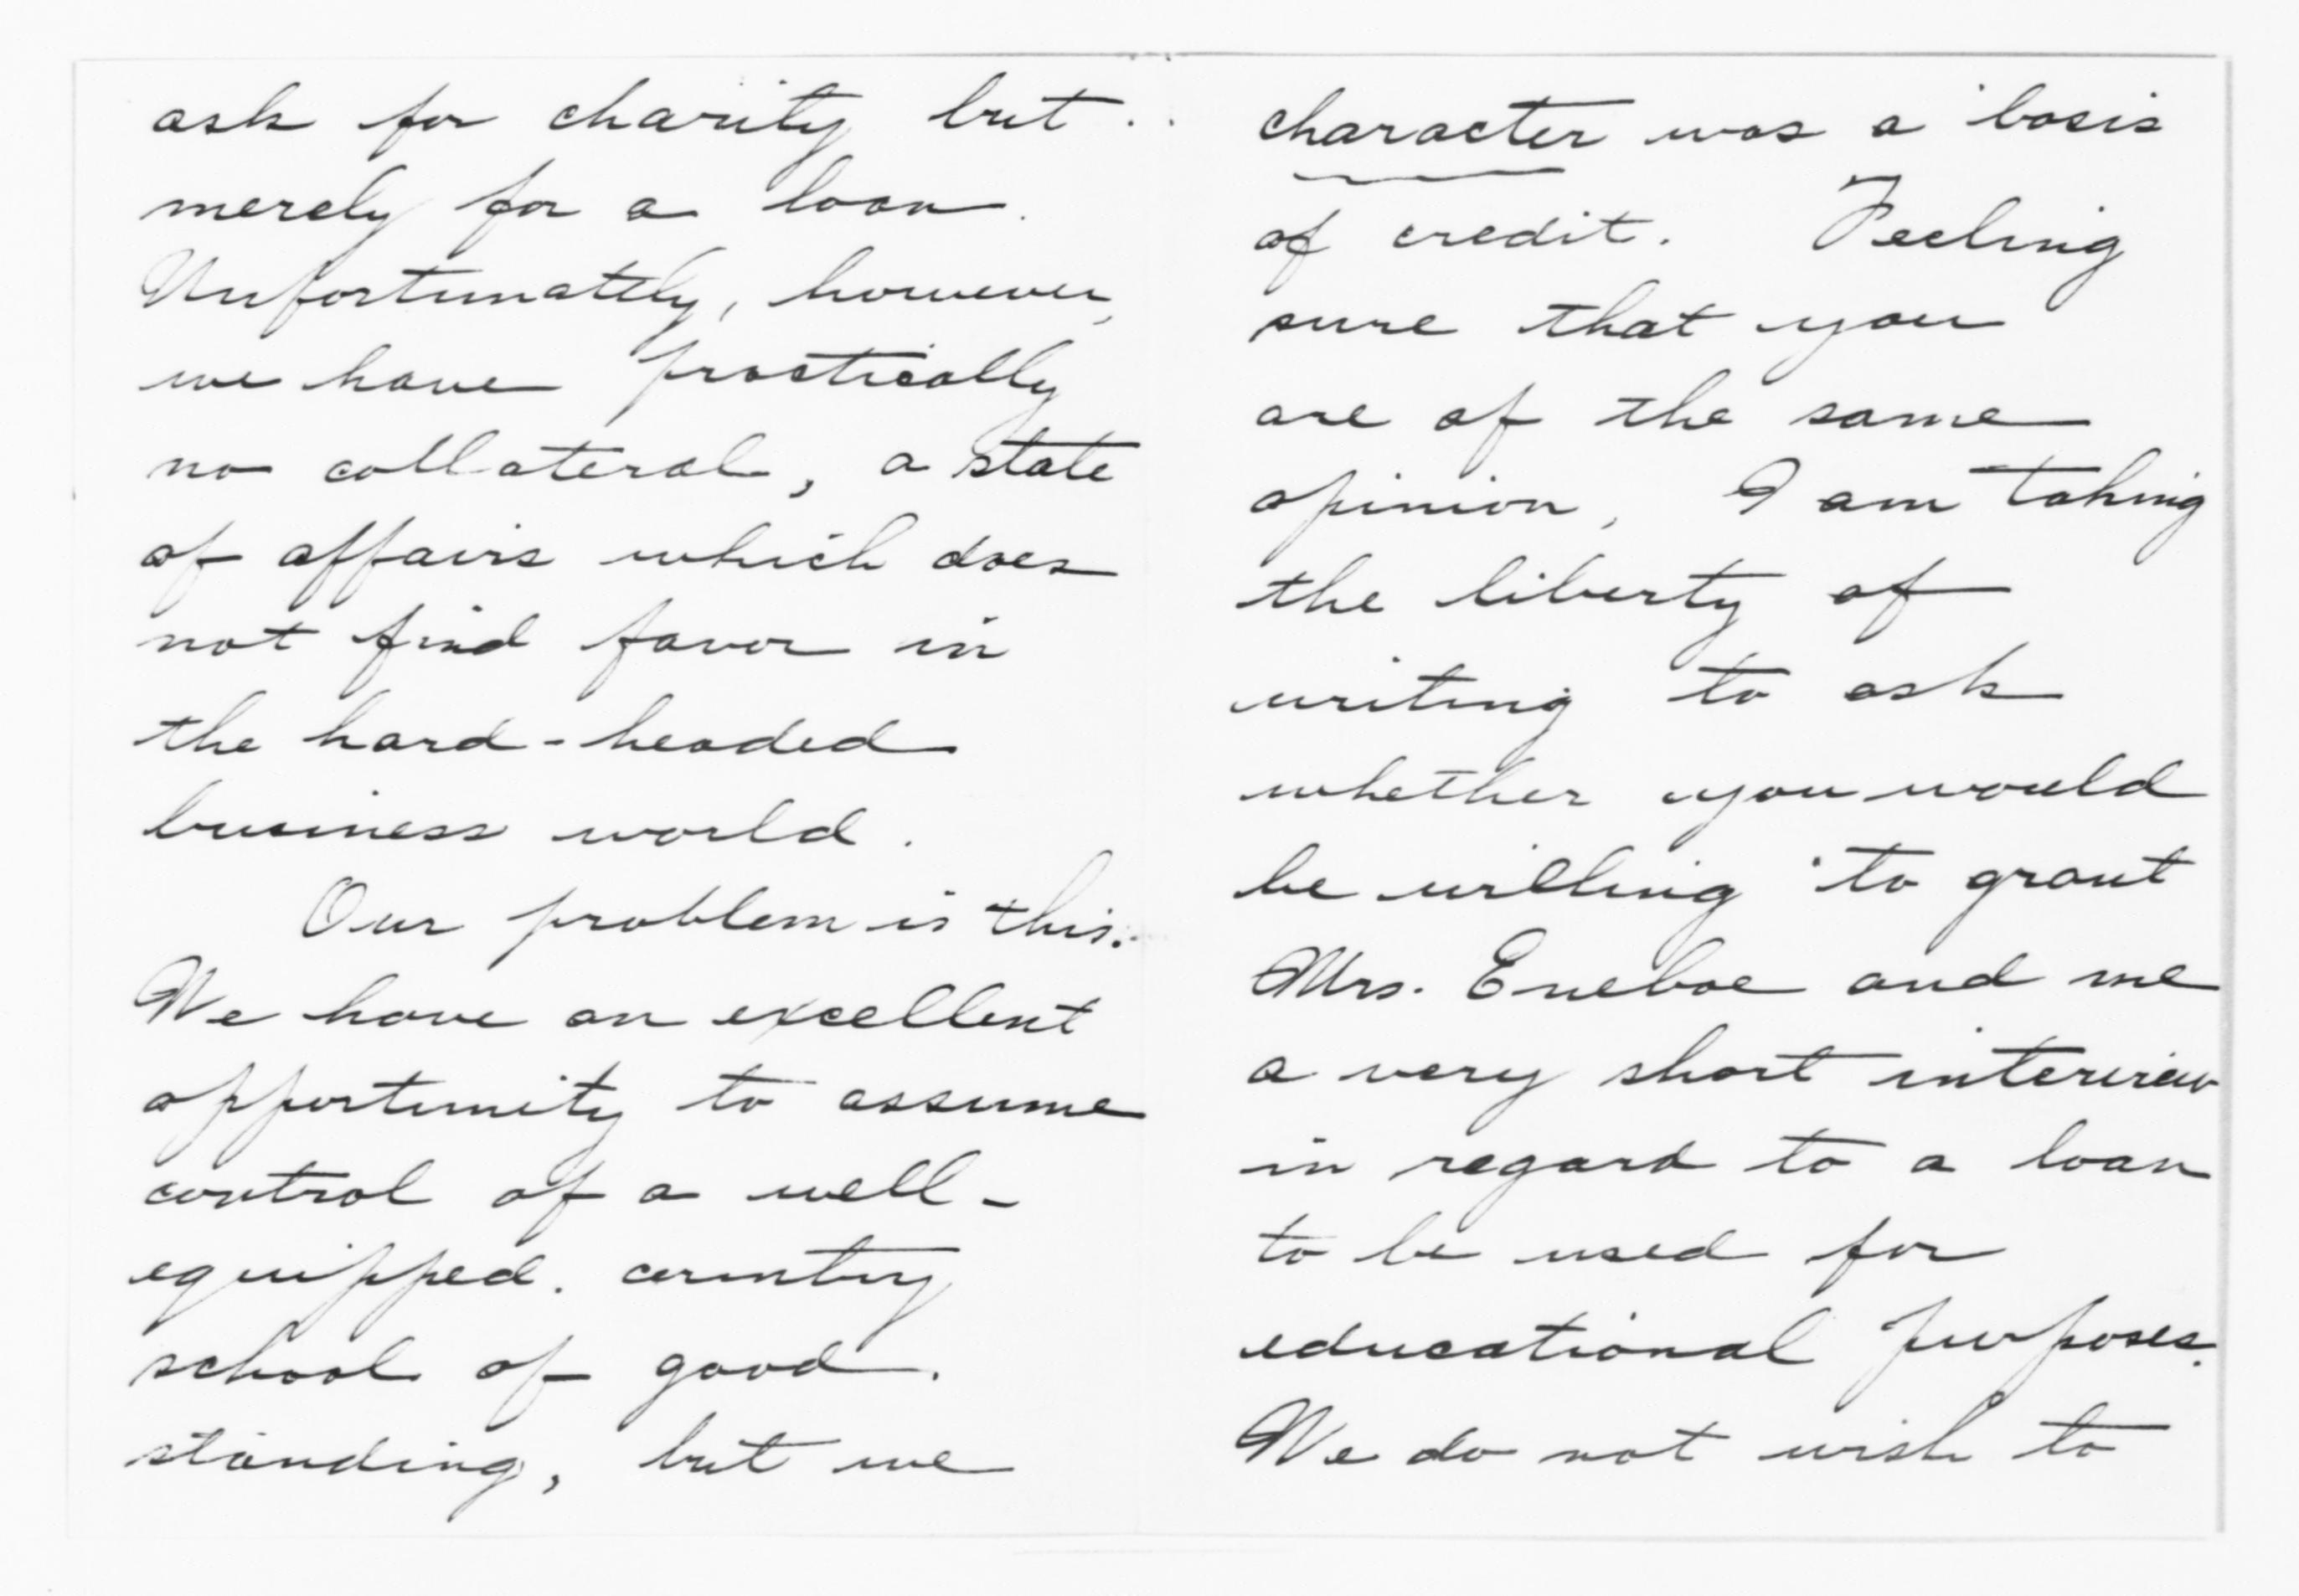 ask for charity but
merely for a loan.
Unfortunately, however,
we have practically
no collateral, a state
of affairs which does
not find favor in
the hard-headed
business world.
Our problem is this.
We have an excellent
opportunity to assume
control of a well-
equipped country
school of good
standing, but we
character was a basis
of credit. Feeling
sure that you
are of the same
opinion, I am taking
the liberty of
writing to ask
whether you would
be willing to grant
Mrs. Eneboe and me
a very short interview
in regard to a loan
to be used for
educational purposes.
We do not wish to